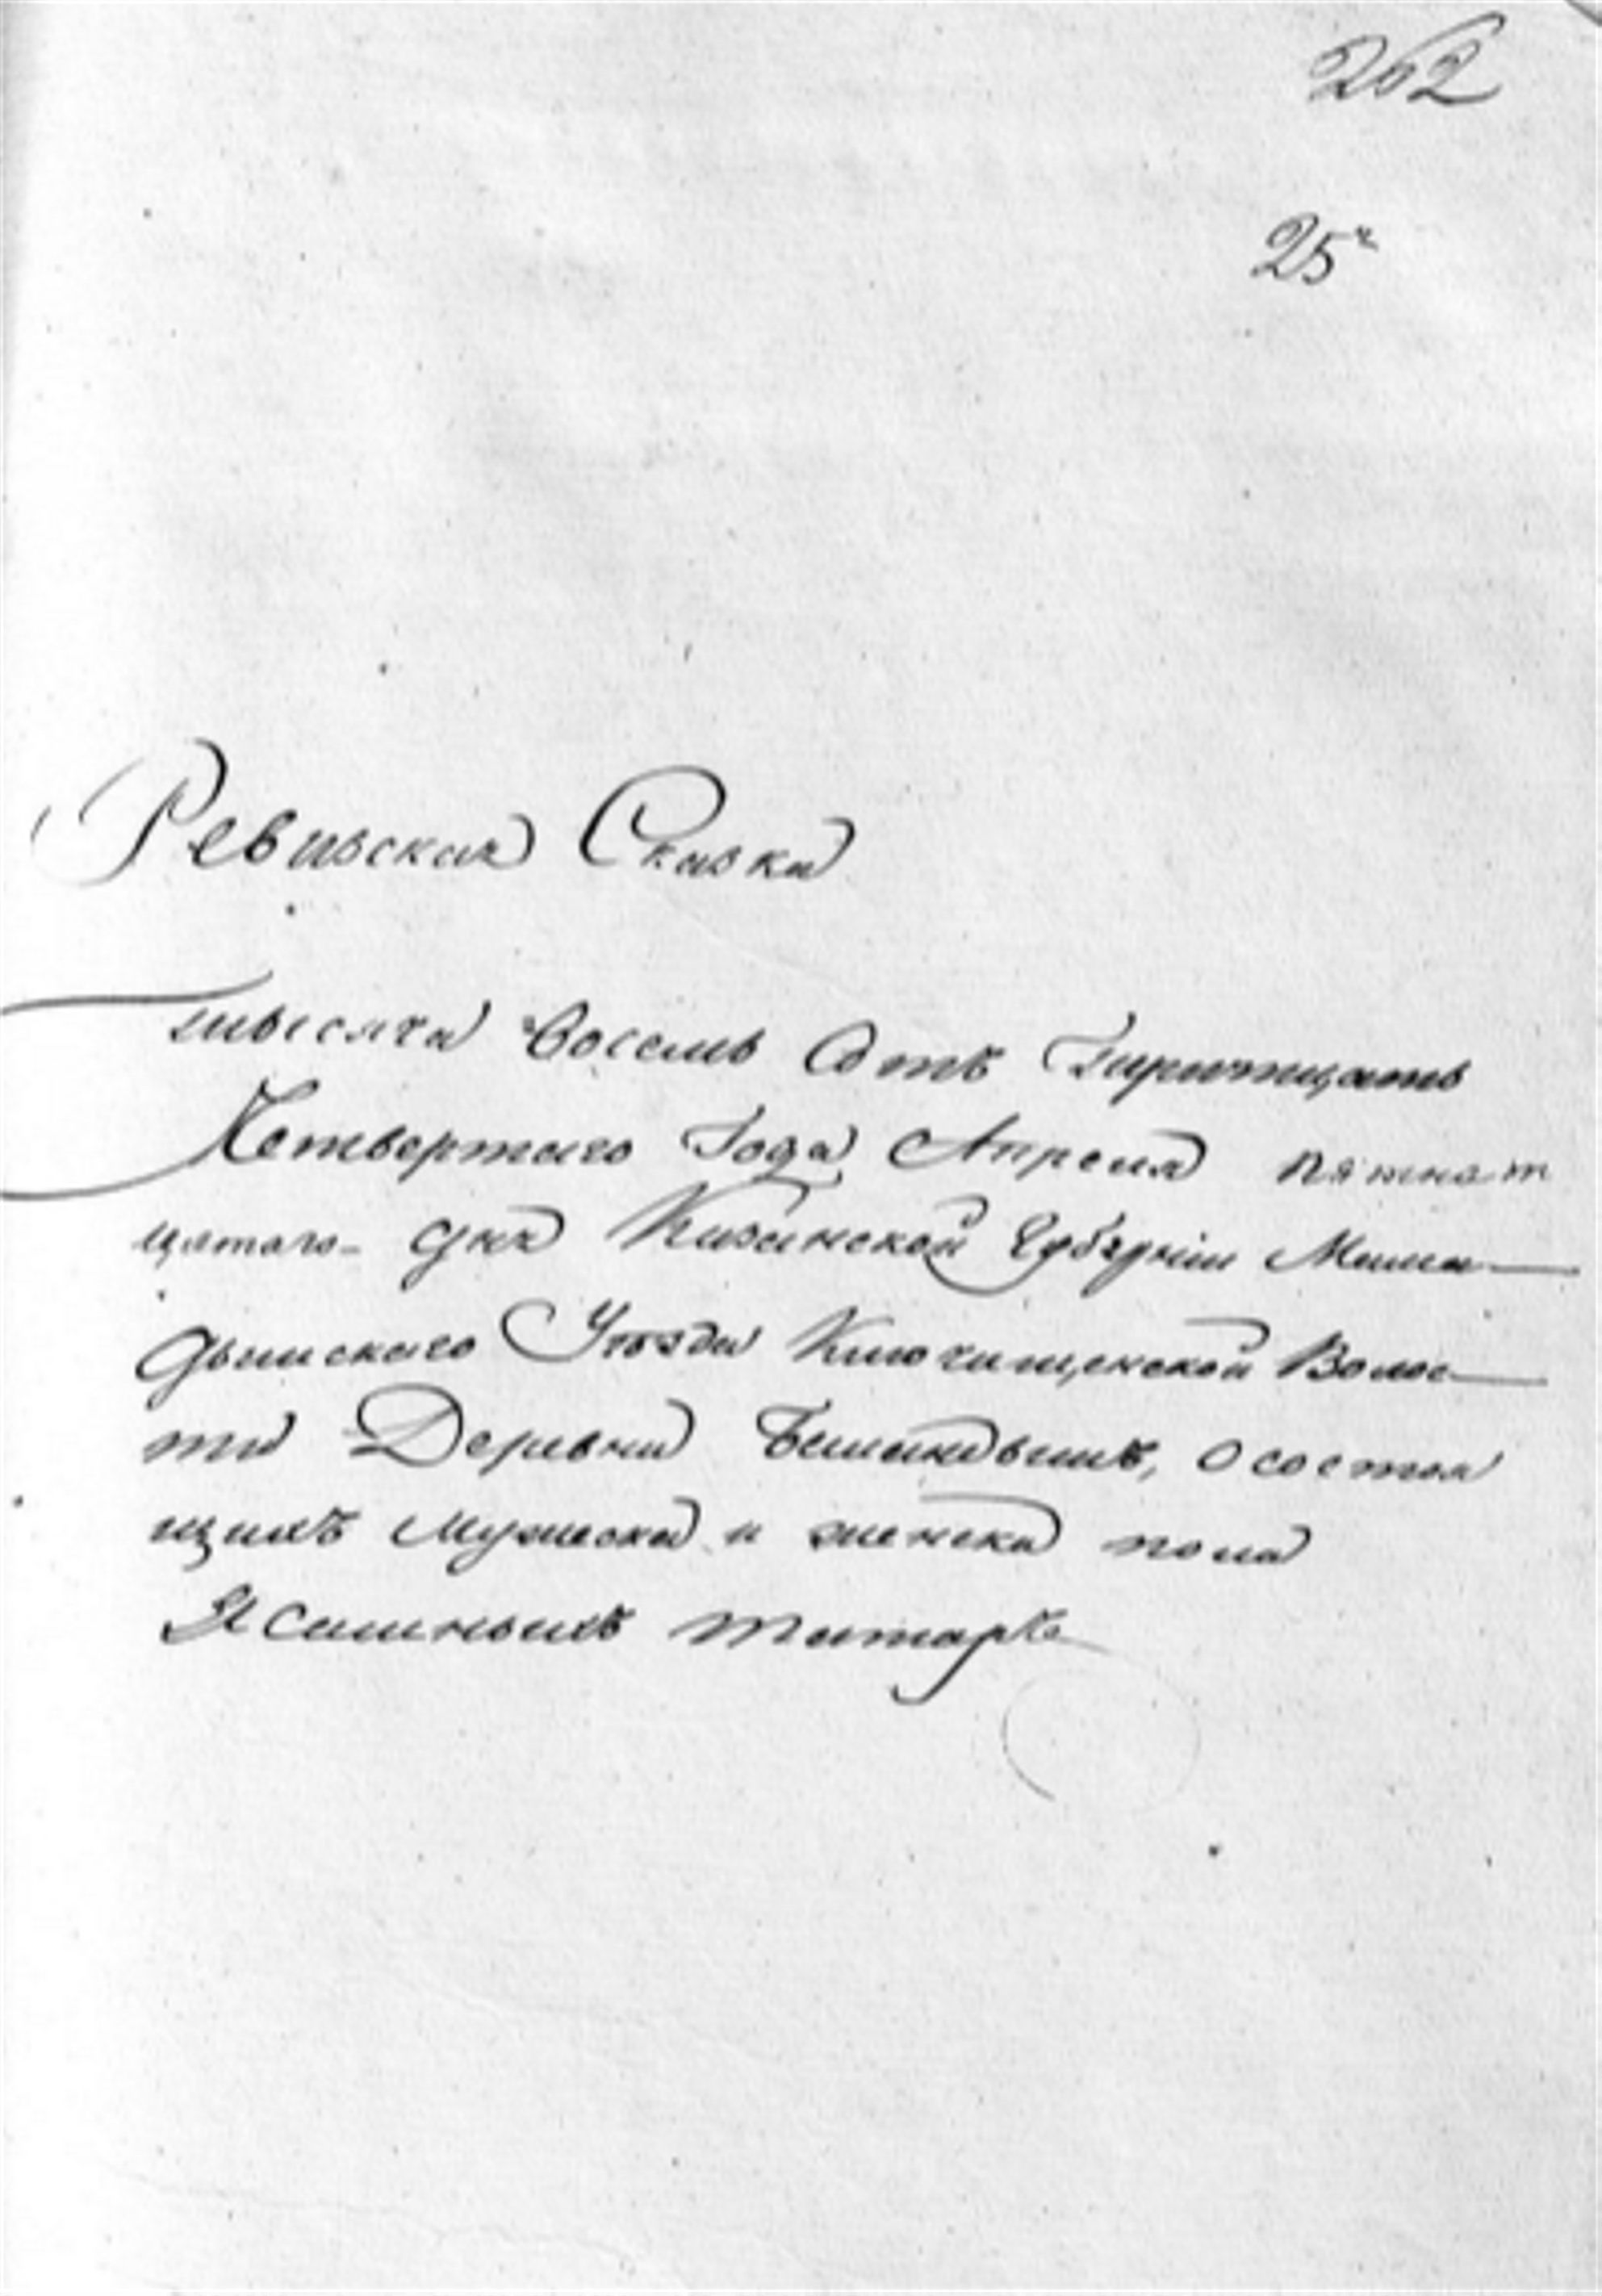 262
25
Ревизская Сказка
тысяча восемь Сотъ Тритцать
Четвертаго Года Апреля пятнат
цатаго дня Казанской Губерніи Мама
дышскаго Уѣзда Ключищенской Волос
ти Деревни о состоя
щихъ мужеска и женска пола
Ясашныхъ татаръ